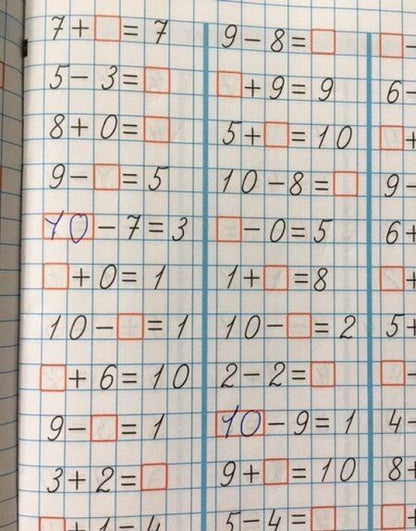 7 + □ = 7
5 - 3 = □
8 + 0 = □
9 - □ = 5
10 - 7 = 3
□ + 0 = 1
10 - □ = 1
□ + 6 = 10
9 - □ = 1
3 + 2 = □
□ + 1 = 4
9 - 8 = □
□ + 9 = 9
5 + □ = 10
10 - 8 = □
□ - 0 = 5
1 + □ = 8
10 - □ = 2
2 - 2 = □
10 - 9 = 1
9 + □ = 10
5 - 4 = □
□ -
6 -
□ +
9 -
6 +
□ +
5 +
□ -
4 -
8 +